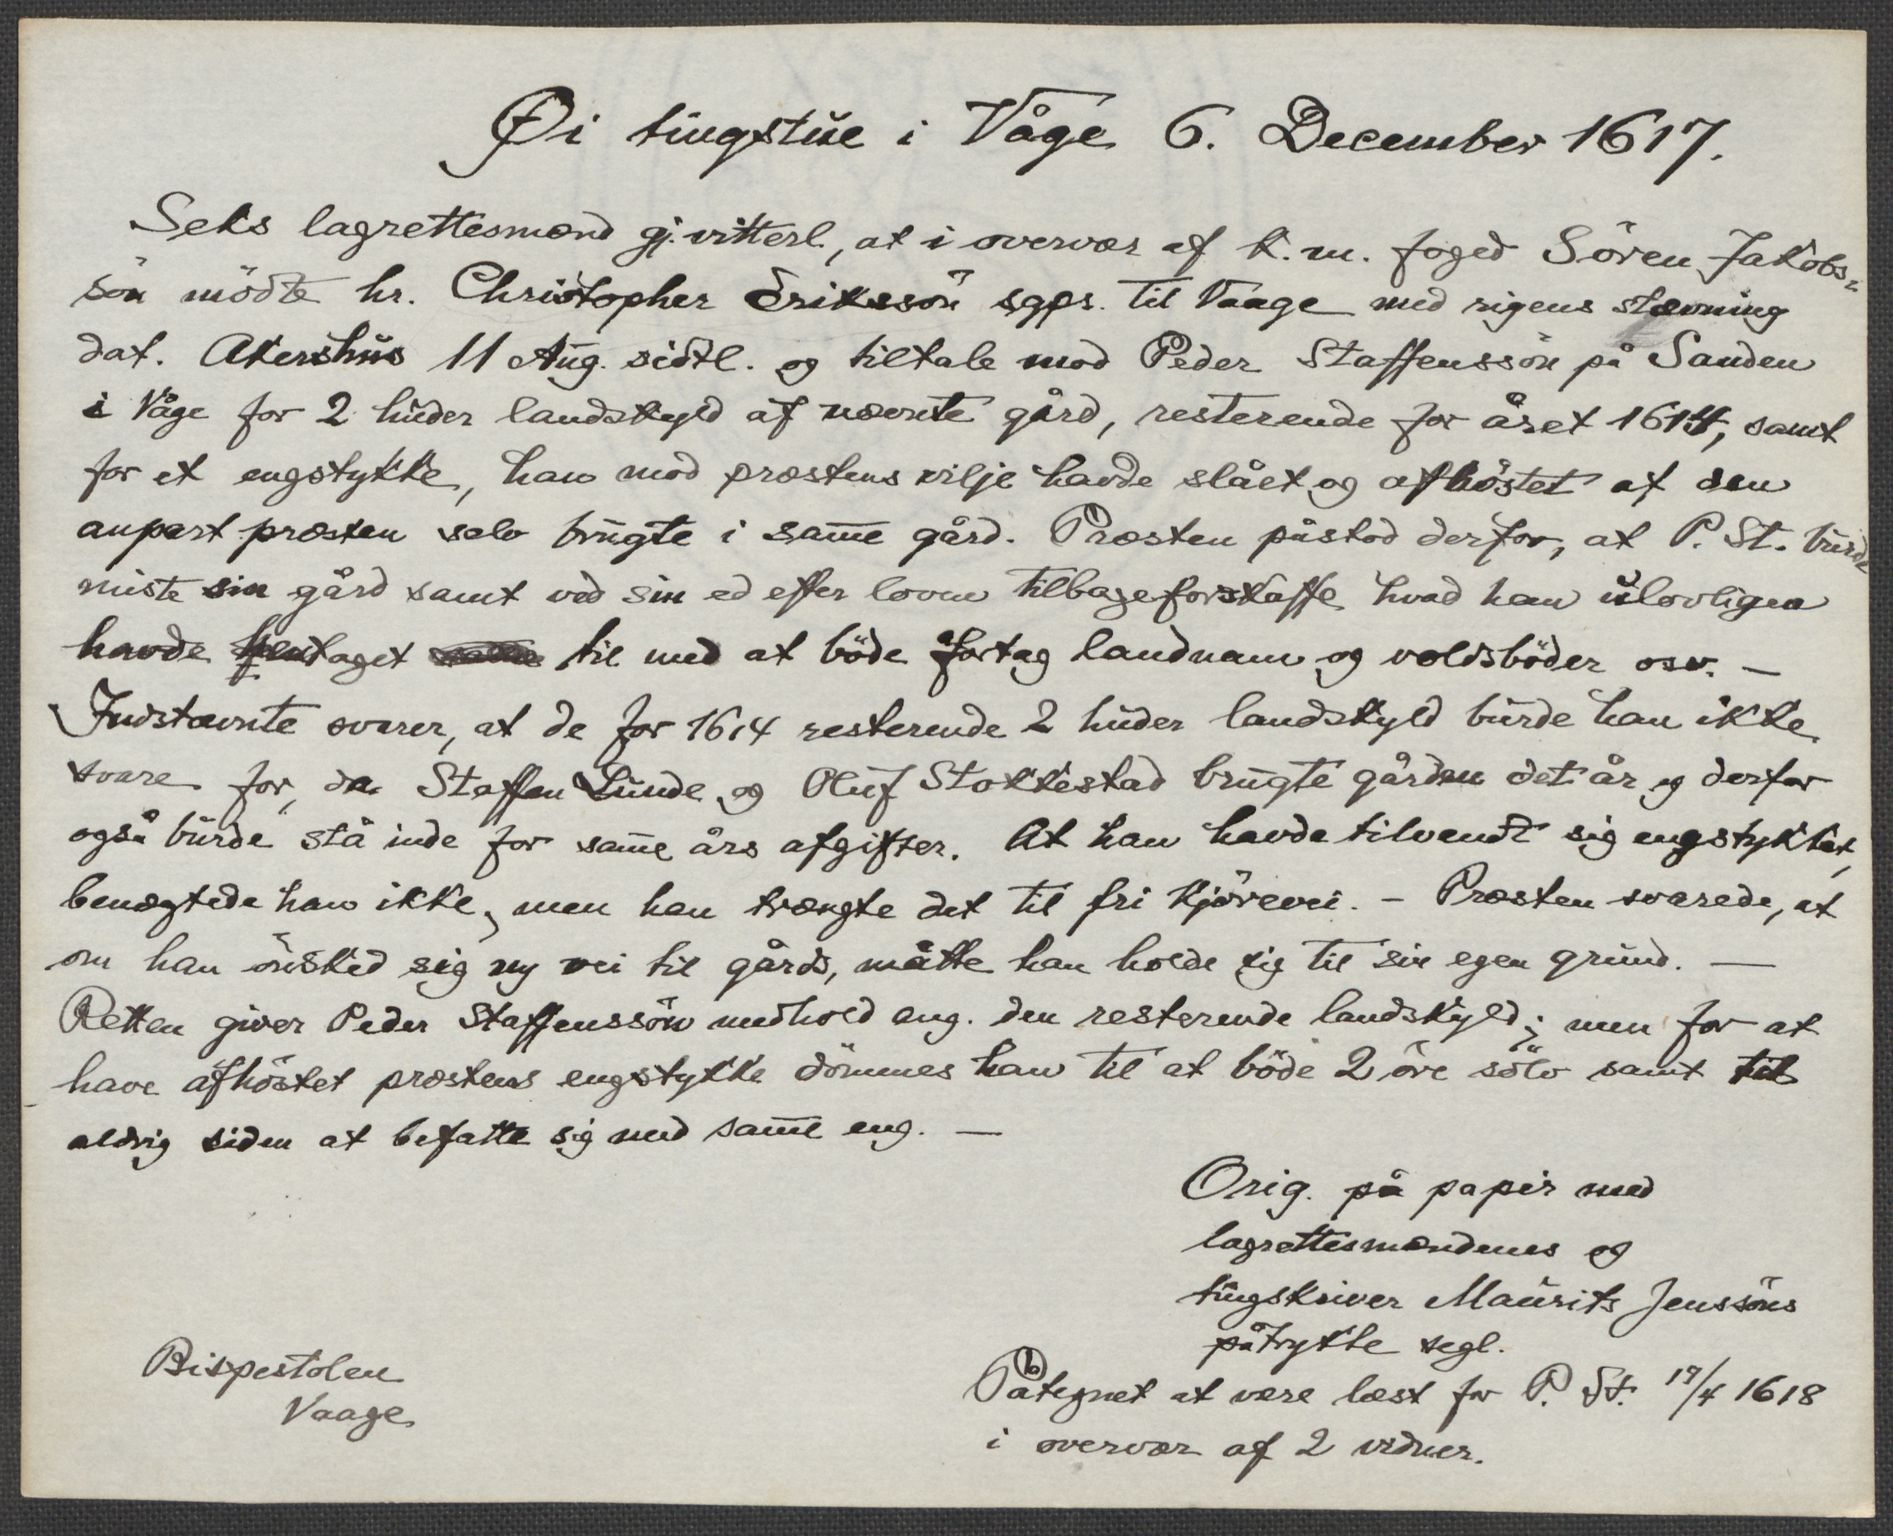 Øi tingstue i Våge 6. December 1617.
Seks lagrettesmænd gj. vitterl., at i overvær af k. m. foged Sören Jakobs-
sön mödte hr. Christopher Erikssön sgpr. til Vaage med rigens stævning
dat. Akershus 11 Aug. sidtl. og tiltale mod Peder Staffenssön på Sanden
i Våge for 2 huder landskyld af nævnte gård, resterende for året 1614, samt
for et engstykke, han mod præstens vilje havde slået og afhöstet af den
anpart præsten selv brugte i sam̅e gård. Præsten påstod derfor, at P. St. burde
miste sin gård samt ved sin ed efter loven tilbageforskaffe hvad han ulovligen
havde taget til med at böde fortag landnam og voldsböder osv. —
Indstævnte svarer, at de for 1614 resterende 2 huder landskyld burde han ikke
svare for, da Staffen Lunde og Oluf Stokkestad brugte gården det år og derfor
også burde stå inde for sam̅e års afgifter. At han havde tilvendt sig engstykket,
benægtede han ikke, men han trængte det til fri kjörevei. – Præsten svarede, at
om han önsked sig ny vei til gårds, måtte han holde sig til sin egen grund. —
Retten giver Peder Staffenssön medhold ang. den resterende landskyld; men for at
have afhöstet præstens engstykke dömmes han til at böde 2 öre sölv samt til
aldrig siden at befatte sig med sam̅e eng. —
Orig. på papir med
lagrettesmændenes og
tingskriver Maurits Jenssöns
påtrykte segl.
Påtegnet at være læst for P. St. 17/4 1618
i overvær af 2 vidner.
Bispestolen
Vaage